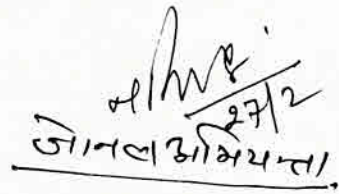 27/2
जोनल अभियन्ता